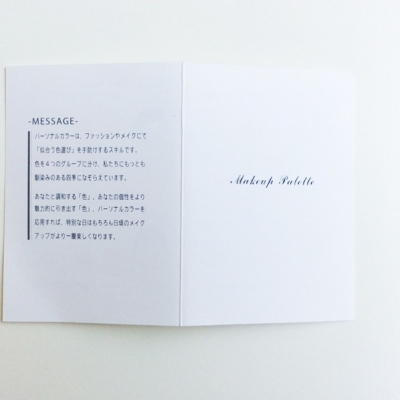 -MESSAGE-
パーソナルカラーは、ファッションやメイクにて
「似合う色選び」を手助けするスキルです。
色を４つのグループに分け、私たちにもっとも
馴染みのある四季になぞらえています。
あなたと調和する「色」、あなたの個性をより
魅力的に引き出す「色」、パーソナルカラーを
応用すれば、特別な日はもちろん日頃のメイク
アップがより一層楽しくなります。
Makeup Palette